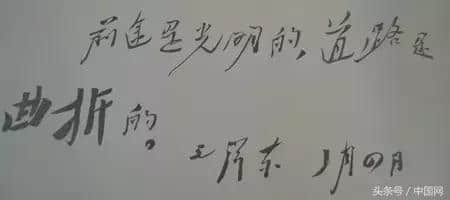 前途是光明的,道路是
曲折的。
毛泽东
头条号 / 中国网